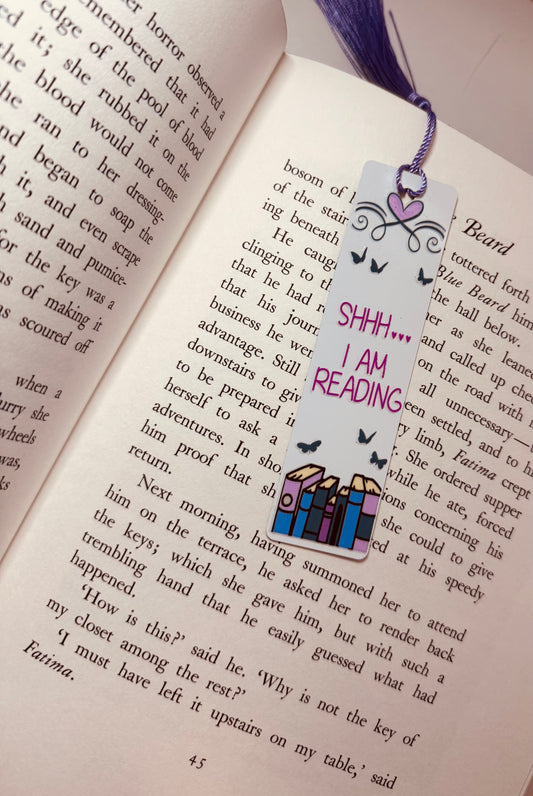 her horror observed a
remembered that it had
edge of the pool of blood
d it; she rubbed it on the
the blood would not come
he ran to her dressing-
nd began to soap the
h it, and even scrape
sand and pumice-
for the key was a
ns of making it
s scoured off
when a
urry she
wheels
was,
ks
Beard
bosom of
tottered forth
of the stair
Blue Beard him
ing beneath
the hall below.
He caug
er as she leane
clinging to
and called up chee
that he had r
on the road with n
that his jour
all unnecessary—
business he we
een settled, and to h
advantage. Still
y limb, Fatima crept
downstairs to gi
She ordered supper
to be prepared i
while he ate, forced
herself to ask a
ons concerning his
adventures. In sho
she could to give
him proof that sh
ed at his speedy
return.
Next morning, having summoned her to attend
him on the terrace, he asked her to render back
the keys; which she gave him, but with such a
trembling hand that he easily guessed what had
happened.
‘How is this?’ said he. ‘Why is not the key of
my closet among the rest?’
‘I must have left it upstairs on my table,’ said
Fatima.
45
SHHH...
I AM
READING